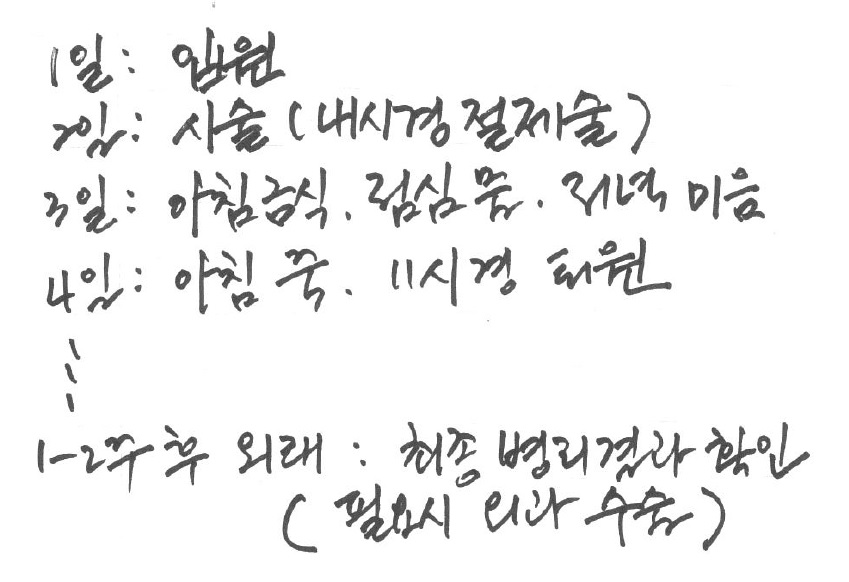 1일: 입원
2일: 시술 (내시경 절제술)
3일: 아침금식. 점심 물. 저녁 미음
4일: 아침 죽. 11시경 퇴원
1-2주 후 외래: 최종 병리결과 확인
(필요시 외과 수술)